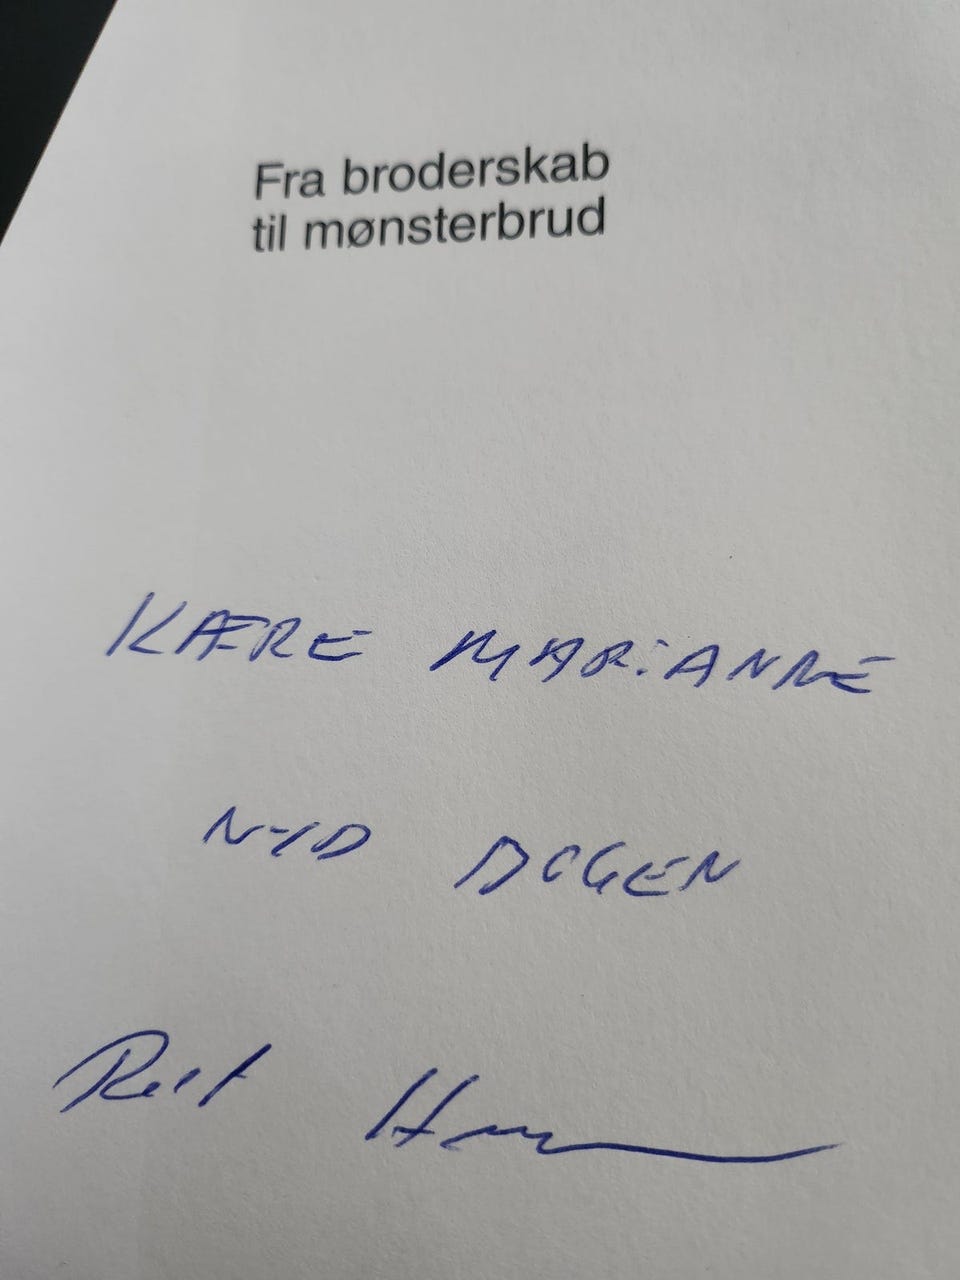 Fra broderskab
til mønsterbrud
KÆRE MARiANNE
NYD DAGEN